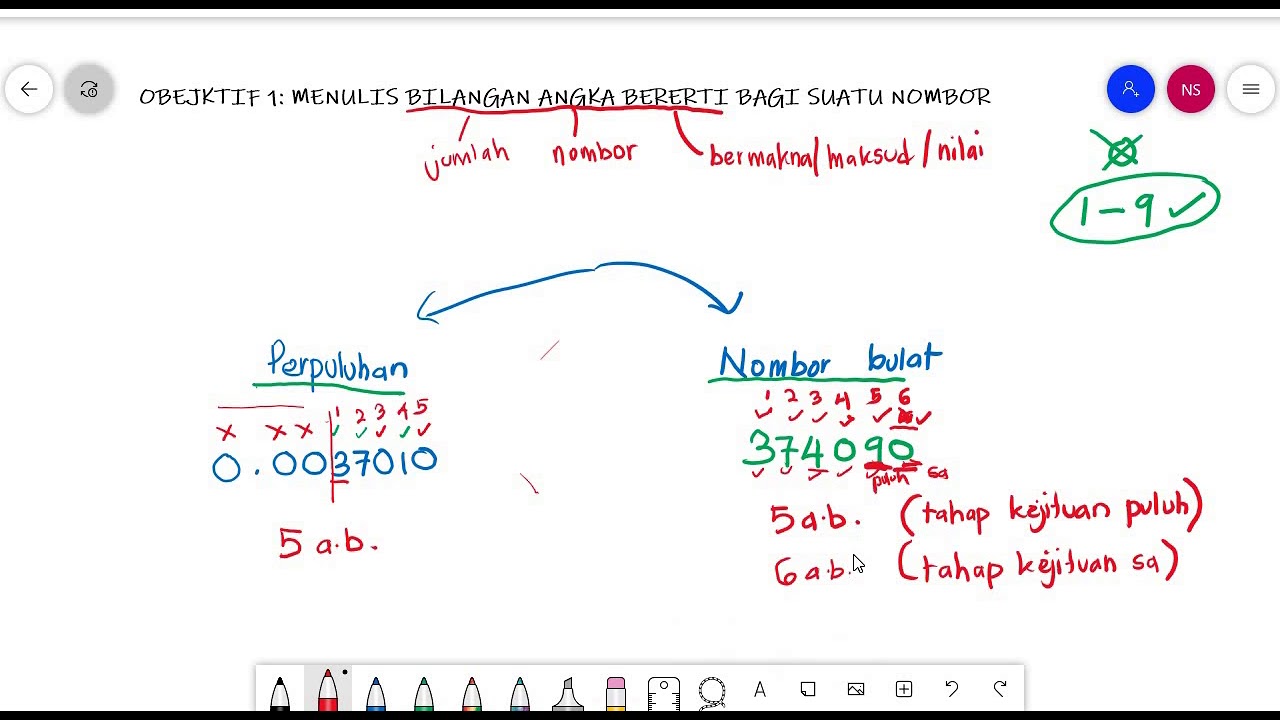 OBEJKTIF 1: MENULIS BILANGAN ANGKA BERERTI BAGI SUATU NOMBOR
NS
jumlah nombor bermakna/maksud/nilai
1-9 ✓
Perpuluhan
Nombor bulat
1 2 3 4 5
x x x ✓ ✓ ✓ ✓ ✓
0.0037010
5 a.b.
1 2 3 4 5 6
✓ ✓ ✓ ✓ ✓ ✓
374090
✓ ✓ ✓ ✓ puluh sa
5 a.b. (tahap kejituan puluh)
6 a.b. (tahap kejituan sa)
A